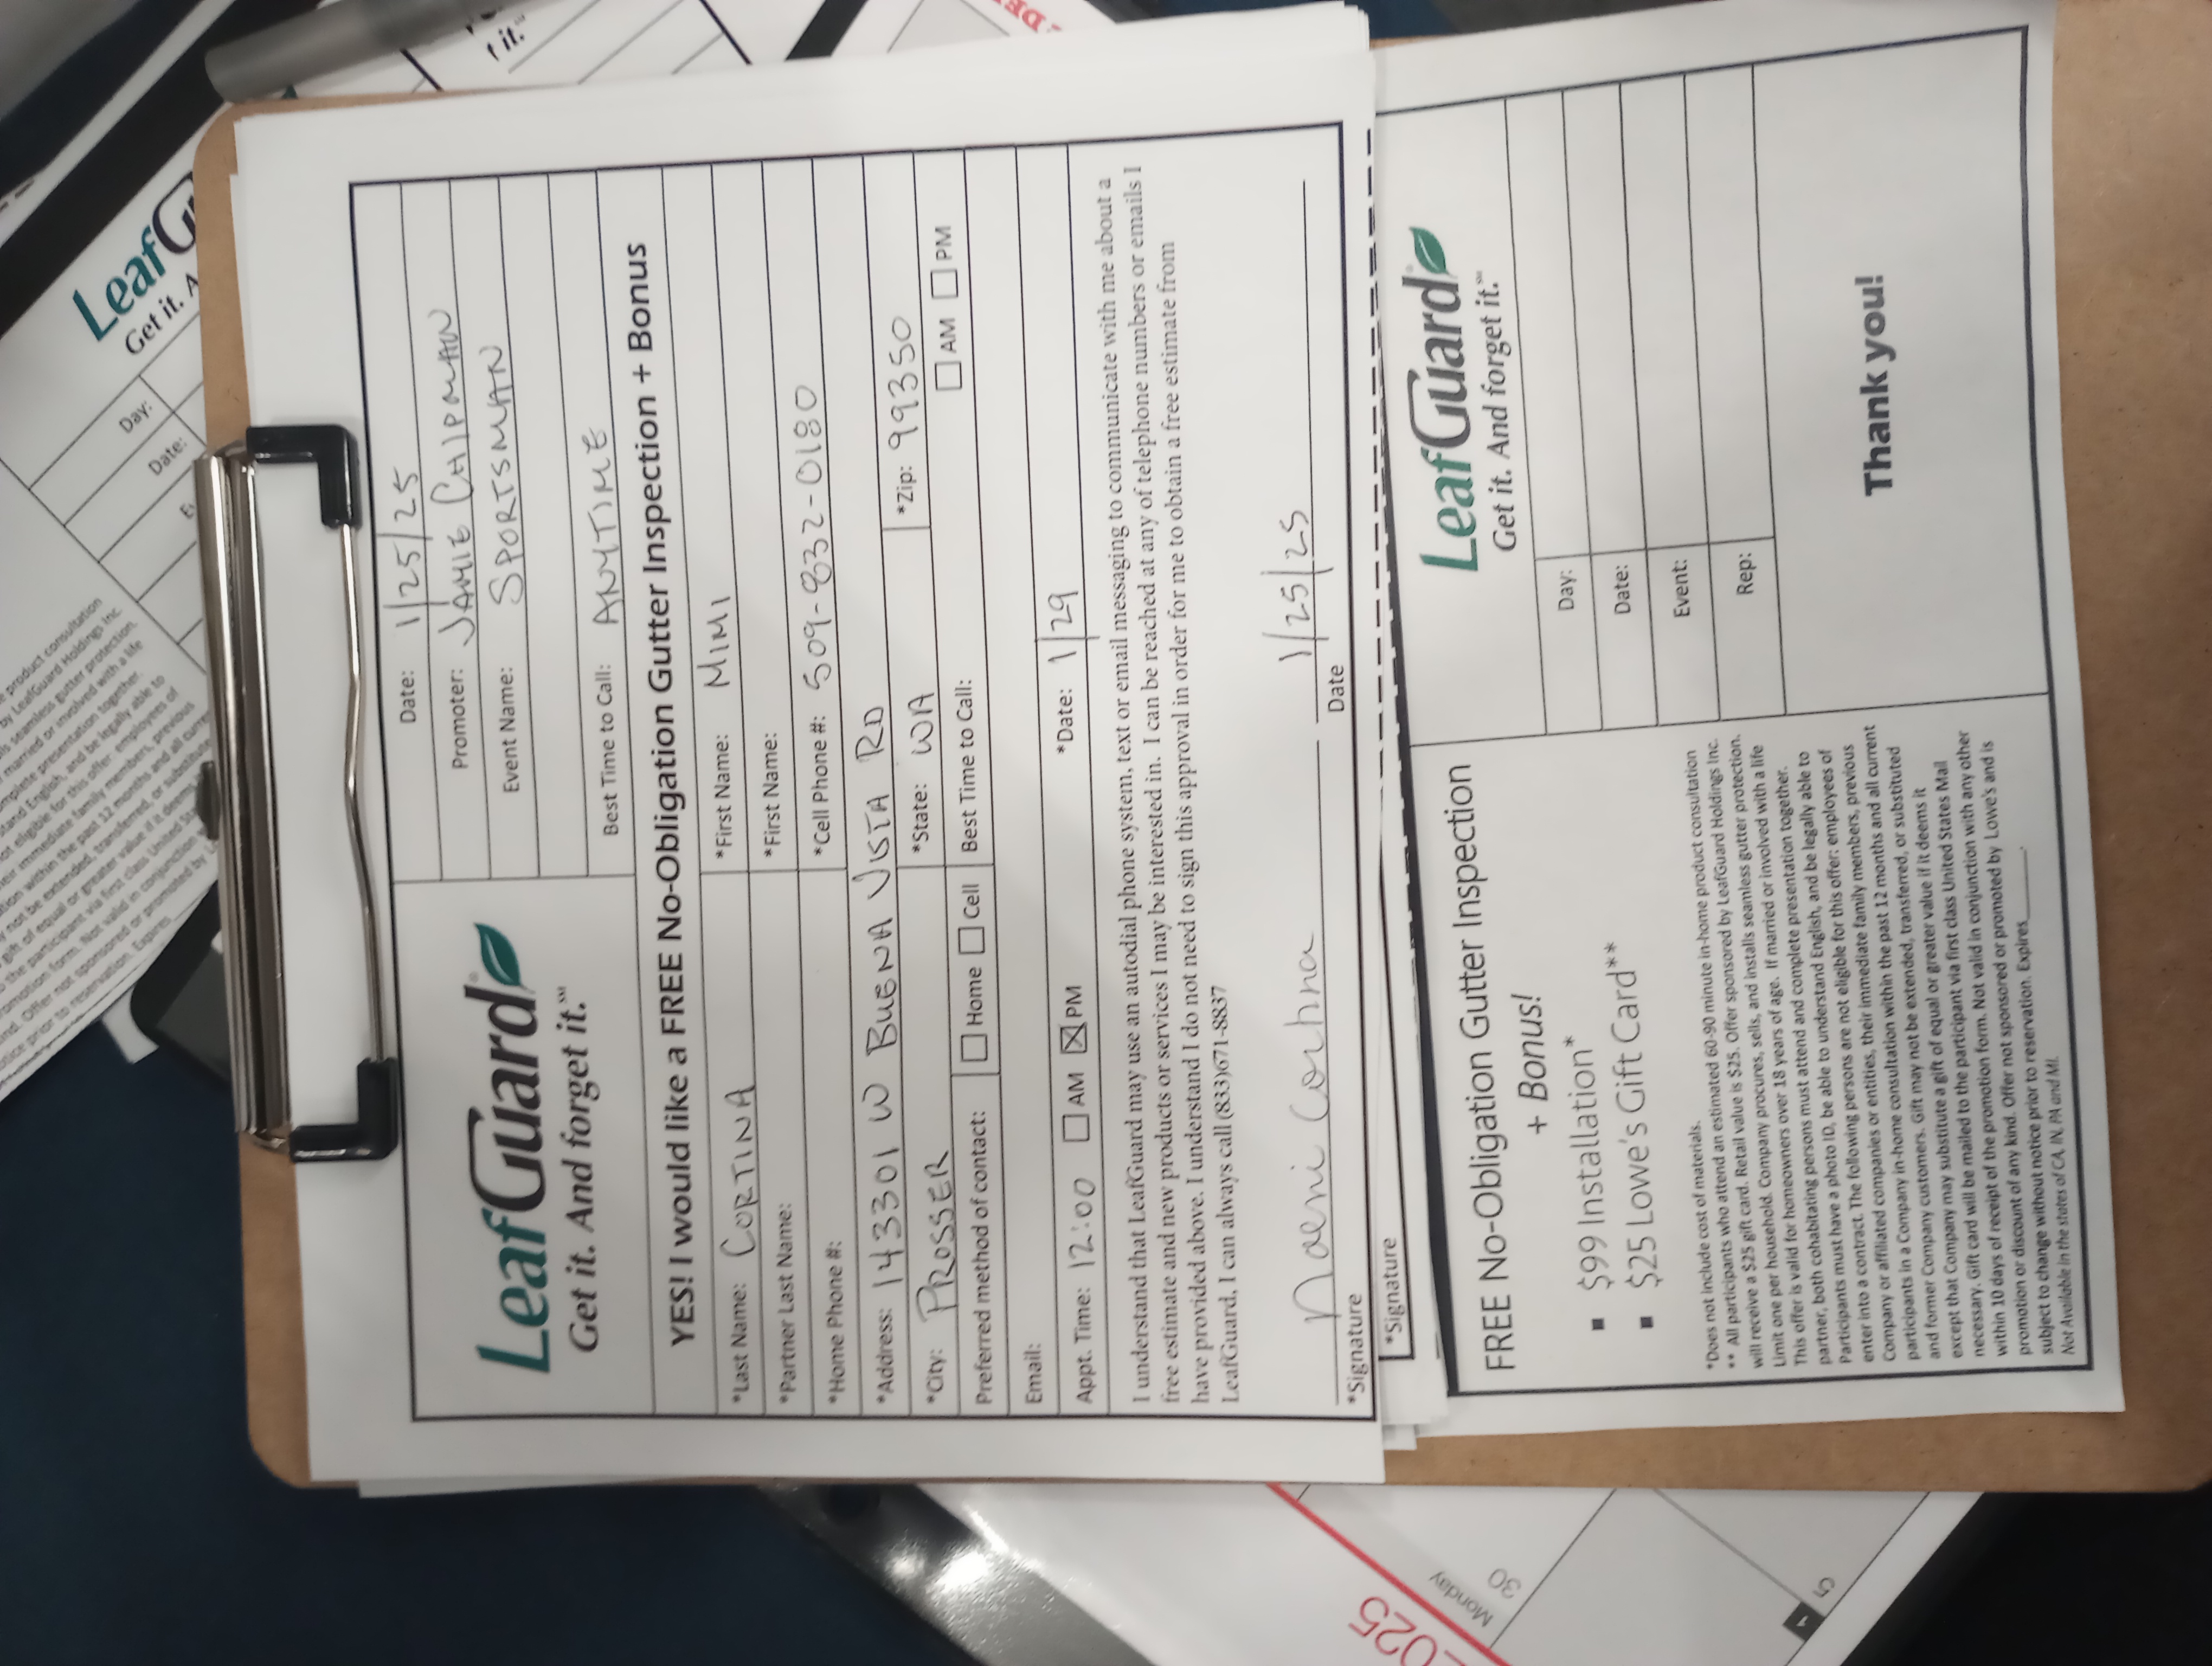 product consultation
by LeafGuard Holdings Inc.
seamless gutter protection.
married or involved with a life
complete presentation together.
and English, and be legally able to
not eligible for this offer: employees of
their immediate family members, previous
within the past 12 months and all current
not be extended, transferred, or substituted
gift of equal or greater value if it deems
the participant via first class United
promotion form. Not valid in conjunction
kind. Offer not sponsored or promoted by
prior to reservation. Expires
LeafGu
Get it. A
Day:
Date:
Date: 1/25/25
Promoter: JAMIE CHIPMAN
Event Name: SPORTSMAN
LeafGuard®
Get it. And forget it.℠
Best Time to Call: ANYTIME
YES! I would like a FREE No-Obligation Gutter Inspection + Bonus
*Last Name: CORTINA *First Name: MIMI
*Partner Last Name: *First Name:
*Home Phone #: *Cell Phone #: 509-832-0180
*Address: 143301 W BUENA VISTA RD
*City: PROSSER *State: WA *Zip: 99350
Preferred method of contact: Home Cell Best Time to Call: AM PM
Email:
Appt. Time: 12:00 AM PM *Date: 1/29
I understand that LeafGuard may use an autodial phone system, text or email messaging to communicate with me about a
free estimate and new products or services I may be interested in. I can be reached at any of telephone numbers or emails I
have provided above. I understand I do not need to sign this approval in order for me to obtain a free estimate from
LeafGuard, I can always call (833)671-8837
Noemi Cortina 1/25/25
*Signature Date
*Signature
FREE No-Obligation Gutter Inspection
+ Bonus!
▪ $99 Installation*
▪ $25 Lowe's Gift Card**
*Does not include cost of materials.
** All participants who attend an estimated 60-90 minute in-home product consultation
will receive a $25 gift card. Retail value is $25. Offer sponsored by LeafGuard Holdings Inc.
Limit one per household. Company procures, sells, and installs seamless gutter protection.
This offer is valid for homeowners over 18 years of age. If married or involved with a life
partner, both cohabitating persons must attend and complete presentation together.
Participants must have a photo ID, be able to understand English, and be legally able to
enter into a contract. The following persons are not eligible for this offer: employees of
Company or affiliated companies or entities, their immediate family members, previous
participants in a Company in-home consultation within the past 12 months and all current
and former Company customers. Gift may not be extended, transferred, or substituted
except that Company may substitute a gift of equal or greater value if it deems it
necessary. Gift card will be mailed to the participant via first class United States Mail
within 10 days of receipt of the promotion form. Not valid in conjunction with any other
promotion or discount of any kind. Offer not sponsored or promoted by Lowe's and is
subject to change without notice prior to reservation. Expires________.
Not Available in the states of CA, IN, PA and MI.
LeafGuard®
Get it. And forget it.℠
Day:
Date:
Event:
Rep:
Thank you!
2025
Monday
30
1
5
it.